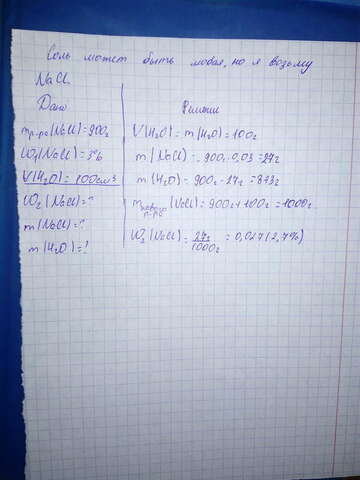 Соль может быть любая, но я возьму
NaCl.
Дано
mр-ра(NaCl)=900г
W1(NaCl)=3%
V(H2O)=100см3
W2(NaCl)=?
m(NaCl)=?
m(H2O)=?
Решение
V(H2O)=m(H2O)=100г
m(NaCl)=900·0,03=27г
m(H2O)=900г-27г=873г
mнового р-ра(NaCl)=900г+100г=1000г
W2(NaCl)=27г/1000г=0,027(2,7%)